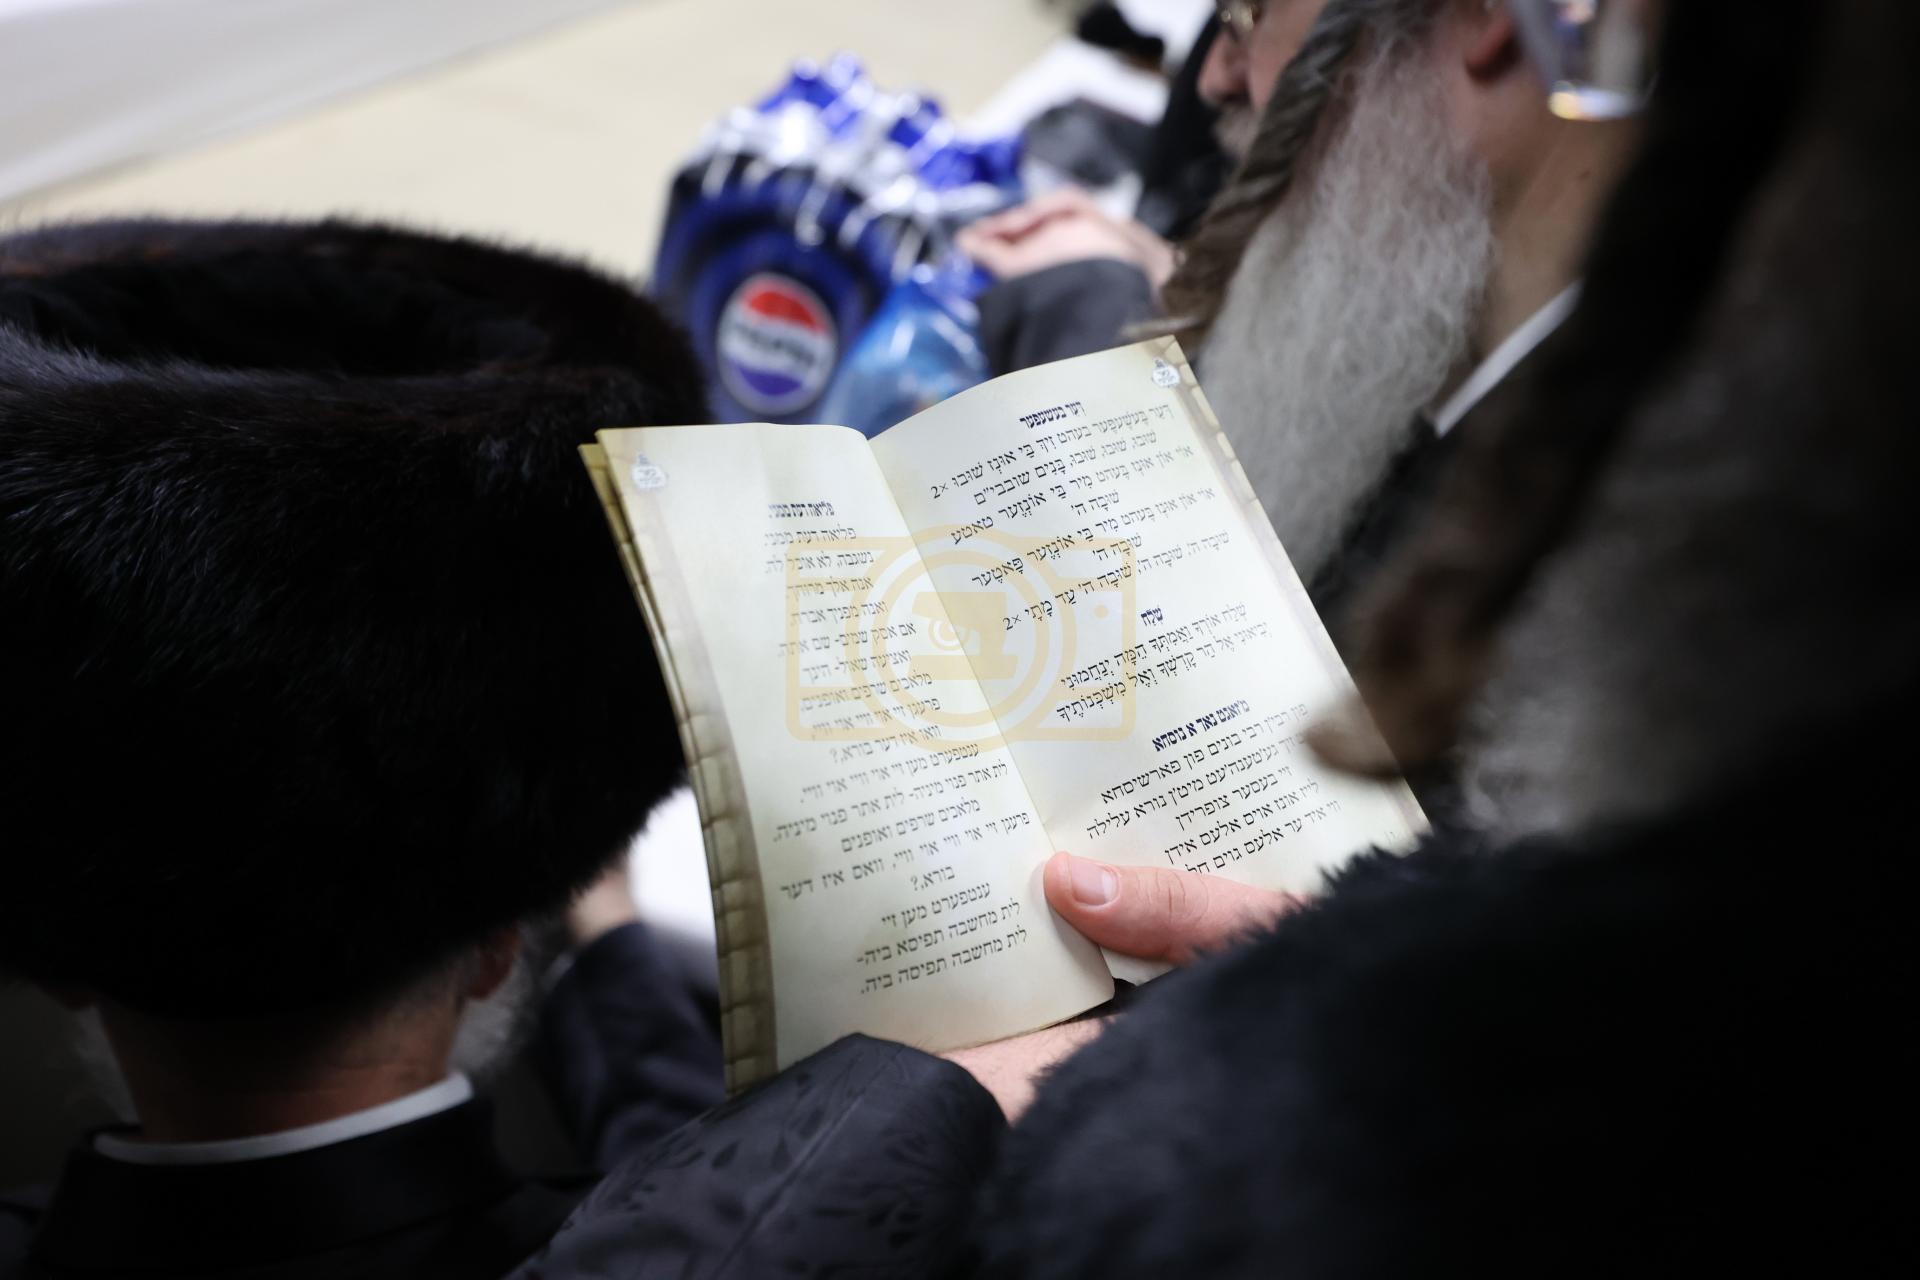 דער בעשעפער
דֶער בַּעשֶׁעפֶער בעהט זִיךְ בַּיי אוּנְז שׁוּבוּ ×2
שׁוּבוּ, שׁוּבוּ, שׁוּבוּ, בָּנִים שובבי״ם
אוֹי אוֹן אוּנְז בֶּעהט מִיר בַּיי אוּנְזֶער טאטע
שׁוּבָה ה'
אוֹי אוֹן אוּנְז בֶּעהט מִיר בַּיי אוּנְזֶער פָאטֶער
שׁוּבָה ה'
שׁוּבָה ה', שׁוּבָה ה', שׁוּבָה ה' עַד מָתָי ×2
שלח
שְׁלַח אוֹרְךָ וַאֲמִתְּךָ הֵמָּה יַנְחוּנִי
יְבִיאוּנִי אֶל הַר קָדְשְׁךָ וְאֶל מִשְׁכְּנוֹתֶיךָ
מ'זאגט נאך א נוסחא
פון רבי'ן רבי בונים פון פארשיסחא
געטענה'עט מיט'ן נורא עלילה
זיי בעסער צופרידן
לייז אונז אוים אלעם אידן
ווי איד ער אלעם גוים
פליאה דעת ממני
פליאה דעת ממני
נשגבה, לא אוכל לה.
אנה אלך מרוחך,
ואנה מפניך אברח.
אם אסק שמים- שם אתה,
ואציעה שאול- הינך
מלאכים שרפים ואופנים,
פרעגן זיי אוי וויי אוי וויי,
וואו איז דער בורא?,
ענטפערט מען זיי אוי וויי אוי וויי.
לית אתר פנוי מיניה- לית אתר פנוי מיניה.
מלאכים שרפים ואופנים
פרעגן זיי אוי וויי אוי וויי, וואס איז דער
בורא?,
ענטפערט מען זיי
לית מחשבה תפיסא ביה-
לית מחשבה תפיסה ביה.